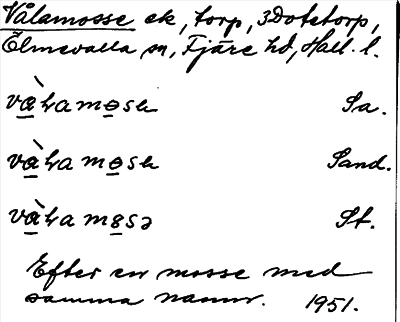 Vålamosse ek, torp, 3Dotetorp,
Ölmevalla sn, Fjäre hd, Hall. l.
vàlamosɐ Sa.
vàlamosɐ Sand.
vàlamosə St.
Efter en mosse med
samma namn. 1951.